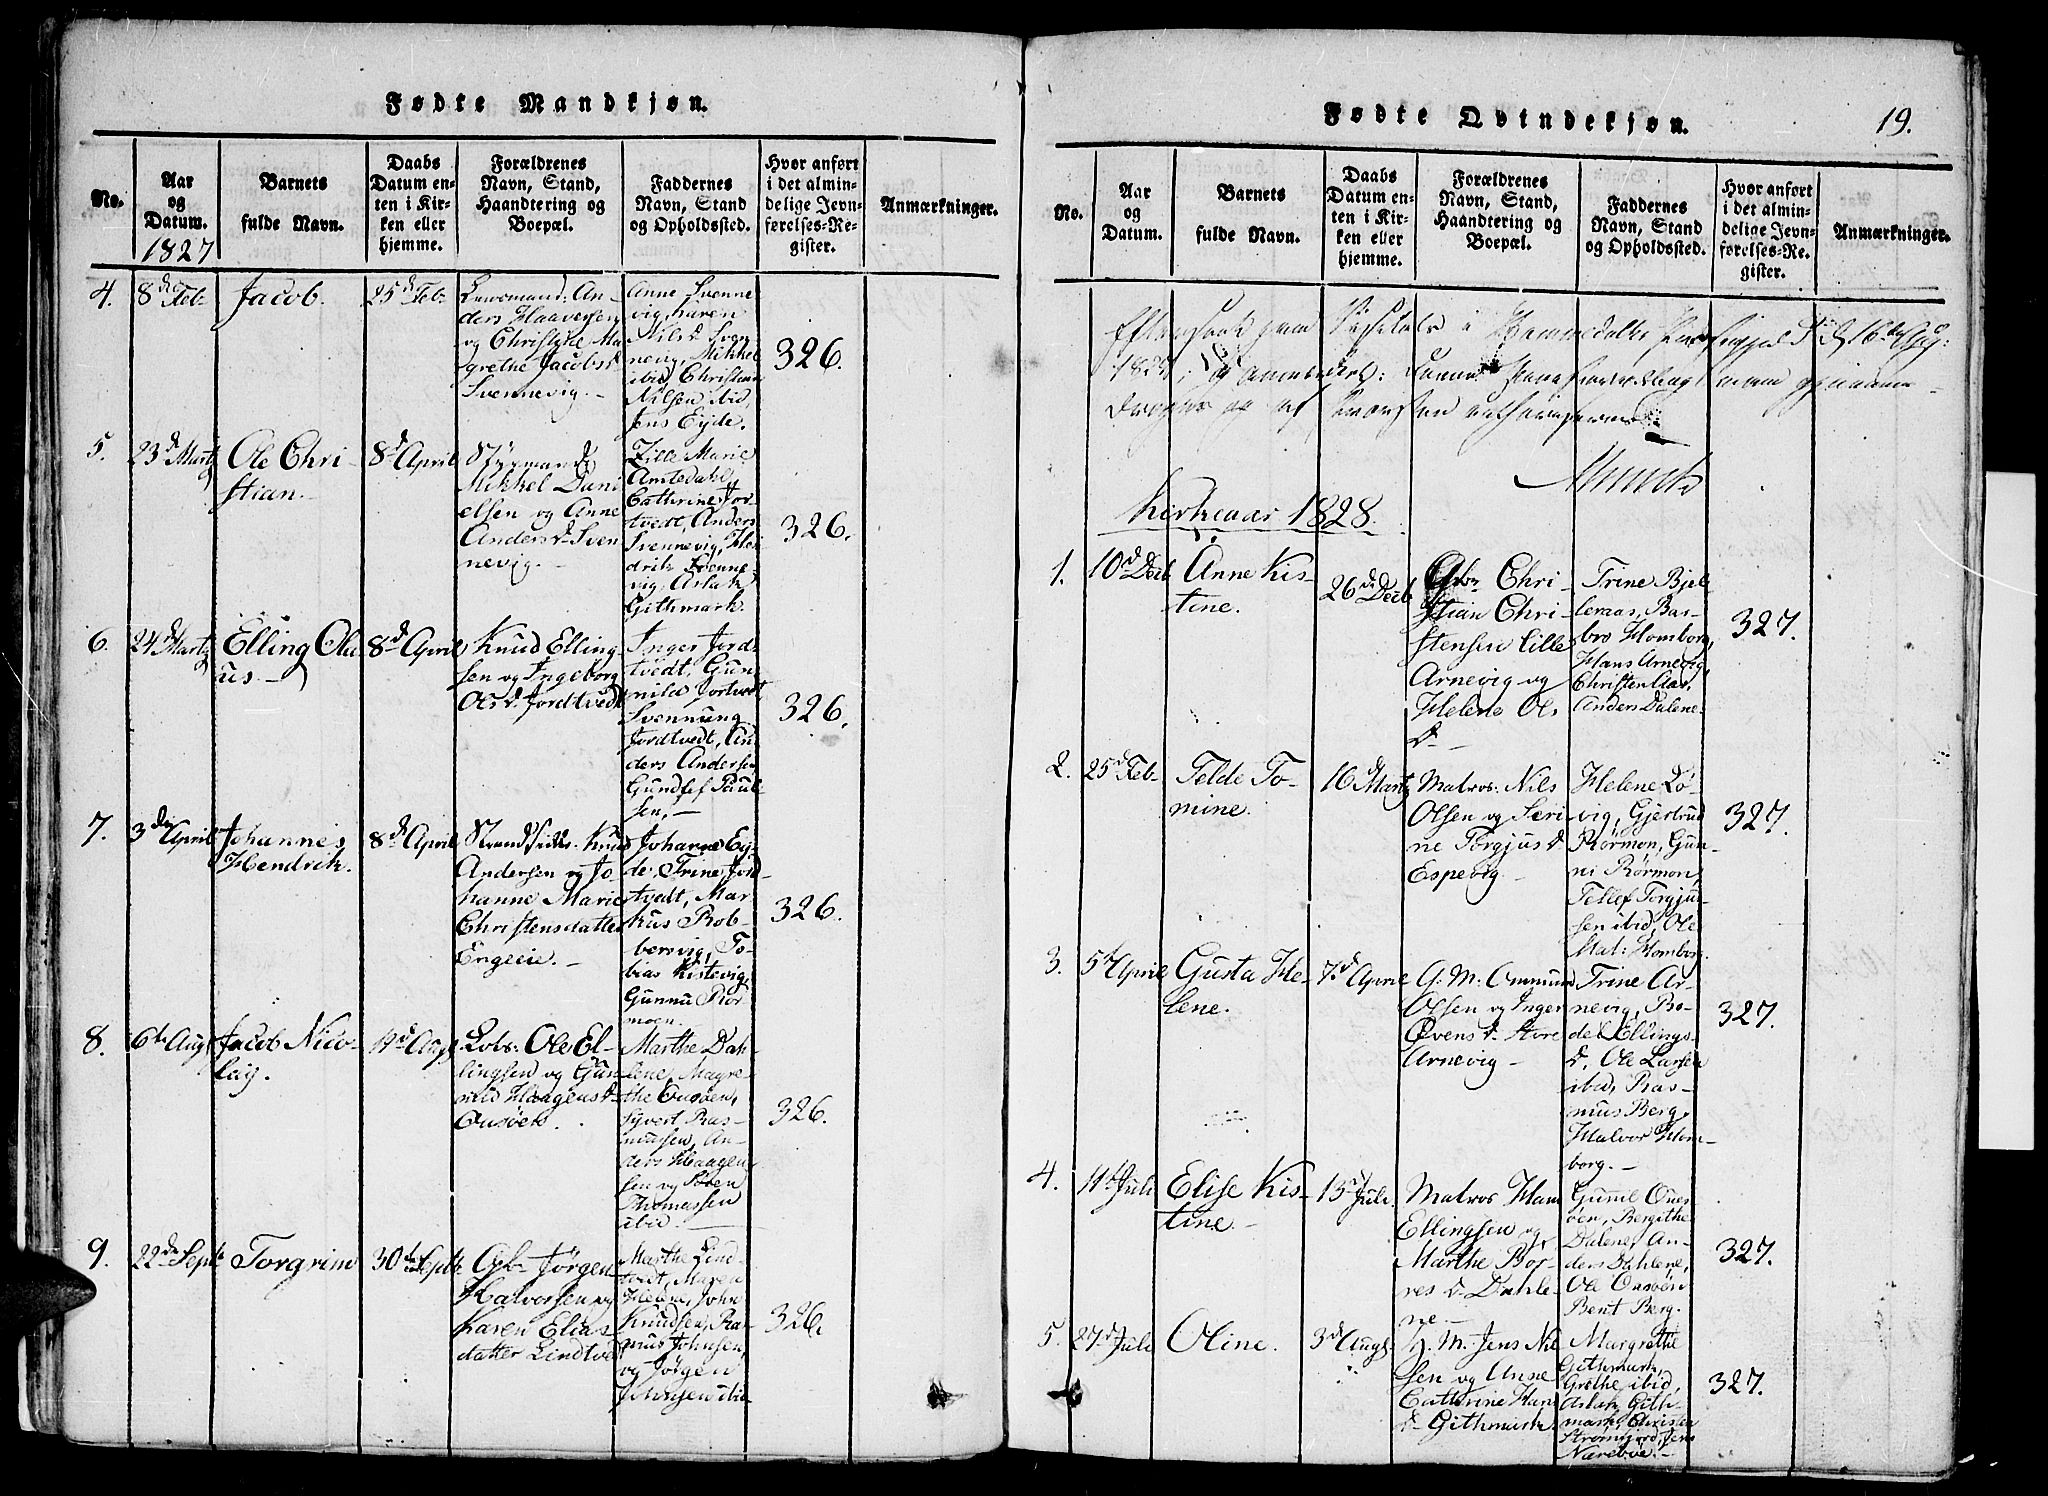 Fødte Mandkjøn.
No.
Aar
og
Datum.
1827
Barnets
fulde Navn.
Daabs
Datum en-
ten i Kir-
ken eller
hjemme.
Forældrenes
Navn, Stand,
Haandtering og
Boepæl.
Faddernes
Navn, Stand
og Opholdssted.
Hvor anført
i det almin-
delige Jevn-
førelses-Re-
gister.
Anmærkninger.
4.
8de Feb.
Jacob.
25d Feb.
An-
ders Haaversen
og Christine Ma
grethe Jacobsd
Svennevig.-
Anne Svenne
vig, Maren
Nilsd Sven
nevig, Mikkel
ibid, Christian
Nilsen ibid,
Jens Eyde.
326.
5.
23d Martz
Ole Chri-
stian.-
8d April
Styrmand
Mikkel Dani
elsen og Anne
Andersd Sven
nevig.-
Zille Marie
Amtedahl
Cathrine Jor-
tvedt, Anders
Svennevig, Hen
drik Svenne-
vig, Aslak
Githmark.
326.
6.
24d Martz
Elling Ola
us.-
8d April
Knud Elling
sen og Ingeborg
Olsd. Jordtvedt
Inger Jord-
tvedt, Gun
nild Jortvedt
Svennung
Jordtvedt, An
ders Andersen
Gundlef Paul
sen,-
326.
7.
3die April
Johannes
Hendrik.
8d April
Strandsidd. Knud
Andersen og Jo-
hanne Marie
Christensdatter
Engeeie.-
Johanne Ey-
de, Trine Jord
tvedt, Mar
kus Rob-
bersvig, To-
bias Kistevig,
Gunnu Rør
moen.
326.
8.
6te Augt
Jacob Nico-
lay.
Lods: Ole El-
lingsen og Gun
nild Haagensd
Ousøen.
Marthe Dah-
lene, Magre-
the Ousøen,
Syvert Ras-
mussen, An-
ders Haagen
sen og Søren
Thomassen
ibid.
326.
9.
22de Septb
Torgrim
30te Septb.
Jørgen
Halvorsen og
Karen Elias
datter Lindtved
Marthe Lind
tvedt, Maren
Helene, John
Knudsen, Ras
mus Johnsen,
og Jørgen
Johnsen ibid
326.
Fødte Qvindekjøn.
19.
No.
Aar
og
Datum.
Barnets
fulde Navn.
Daabs
Datum en-
ten i Kir-
ken eller
hjemme.
Forældrenes
Navn, Stand,
Haandtering og
Boepæl.
Faddernes
Navn, Stand
og Opholdssted.
Hvor anført
i det almin-
delige Jevn-
førelses-Re-
gister.
Anmærkninger.
Munch
Kirkeaar 1828.
1.
10d Decb
Anne Kis-
tine.
26de Decb
Chri
stian Chri
stensen Lille
Arnevig og
Helene Ols
d.-
Trine Bjel
leraas, Bar-
bro Homborg,
Hans Arnevig,
Christen Aas,
Anders Dalene.
327.
2.
25d Feb.
Telde To-
mine.
16d Martz
Matros: Nils
Olsen og Seri
ne Torgjusd
Espevig.-
Helene Lø-
vig, Gjertrud
Rørmon, Gun-
ni Rørmon,
Tellef Torgju-
sen ibid, Ole
Homborg.
327.
3.
5te April
Gusta He-
lene.
7d April
G. M. Ommund
Olsen og Inger
Evensd. Store
Arnevig-
Trine Ar-
nevig, Bo-
del Ellings-
d, Ole Larsen
ibid, Ras-
mus Berg,
Halvor Hom-
borg.-
327.
4.
11te Juli
Elise Kis-
tine.
13d Juli.
Matros Han
Ellingsen og
Marthe Bor-
res d. Dahle-
ne.-
Gunil Oues
øen, Bergithe
Dalene, An-
ders Dahlene,
Ole Ousøen
Bent Berg.
327.
5.
27d Juli
Oline.
3d Augt.
H. M. Jens Nil
sen og Anne
Cathrine Hans
d. Githmark.
Margrethe
Githmark,
Grethe ibid,
Aslak Gith-
mark, Christen
Strømfjord, Jens
Nærebøe.-
327.